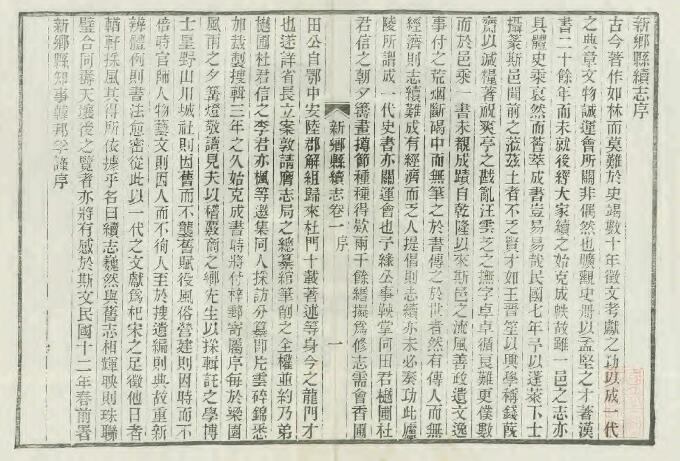 新鄉縣續志序
古今著作如林而莫難於史竭數十年徵文考獻之功以成一代
之典章文物誠運會所關非偶然也曠觀史冊以孟堅之才著漢
書二十餘年而未就後經大家續之始克成帙故雖一邑之志亦
具體史乘裒然而薈萃成書豈易易哉民國七年予以蓬萊下士
攝篆斯邑間前之蒞茲土者不乏賢才如王晉笙以興學稱錢蔭
齋以減糧著祝爽亭之戡亂汪雲芝之撫字卓卓循良難更僕數
而於邑乘一書未覩成蹟自乾隆以來斯邑之流風善政遺文逸
事付之荒烟斷碣中而無筆之於書傳之於世者然有傳人而無
經濟則志續難成有經濟而乏人提倡則志續亦未必奏功此廬
陵所謂成一代史書亦關運會也予緣公事鞅掌何田君樾圃杜
君信之朝夕籌畫撙節種種得欵兩千餘緡擬為修志需會香圃
新鄉縣續志卷一 序 一
田公自鄂中安陸郡解組歸來杜門十載著述等身今之龍門才
也遂詳省長立案敦請膺志局之總纂綰筆削之全權並約乃弟
樾圃杜君信之李君亦楓等遴集同人採訪分纂即片雲碎錦悉
加裁製搜輯三年之久始克成書時將付梓郵寄屬序每於梁園
風雨之夕篝燈敬讀見夫以穡覈商之鄉先生以採輯託之學博
士星野山川城社則因舊而不襲舊賦役風俗營建則因時而不
倍時官師人物藝文則因人而不徇人至於搜遺編則典故重新
辨體例則書法愈密從此以一代之文獻為杞宋之足徵他日者
輶軒採風其得所依據乎名曰續志巍然與舊志相輝映則珠聯
璧合同壽天壤後之覽者亦將有感於斯文民國十二年春前署
新鄉縣知事韓邦孚謹序